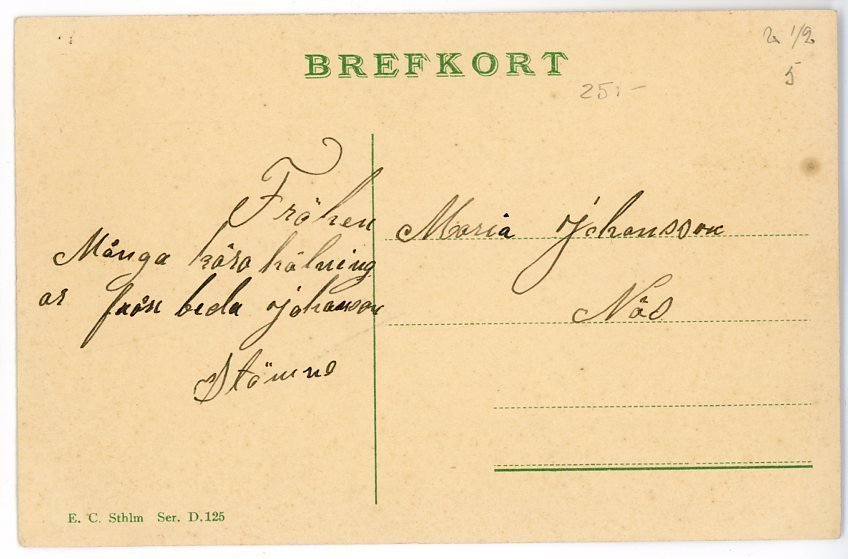 BREFKORT
2 1/2
5
251-
Fröhen
Många kära hälning
ar från beda Johanson
Stömne
Maria Johansson
Näs
E. C. Sthlm Ser. D.125